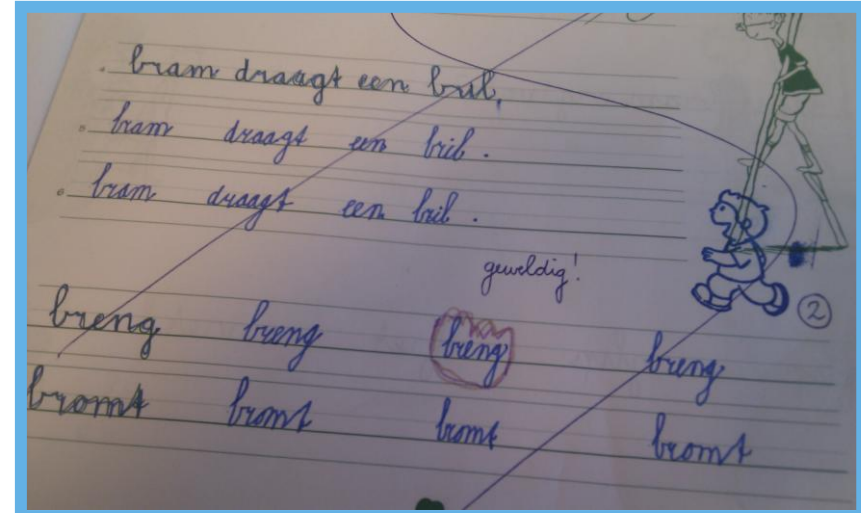 bram draagt een bril.
bram draagt een bril.
bram draagt een bril.
geweldig!
breng breng breng breng
2
bromt bromt bromt bromt